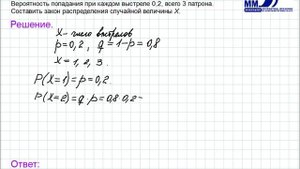 Вероятность попадания при каждом выстреле 0,2, всего 3 патрона.
Составить закон распределения случайной величины X.
ММ
Решение.
X - число выстрелов
p=0,2, q=1-p=0,8
X=1, 2, 3.
P(X=1)=p=0,2
P(X=2)=q·p=0,8·0,2-
Ответ: